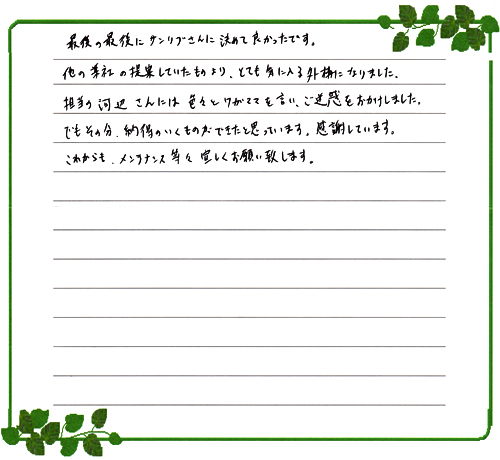 最後の最後にケンリブさんに決めて良かったです。
他の業社の提案していたものより、とても気に入る外構になりました。
担当の河辺さんには色々とワガママを言い、ご迷惑をおかけしました。
でもその分、納得のいくものができたと思っています。感謝しています。
これからも、メンテナンス等々宜しくお願い致します。